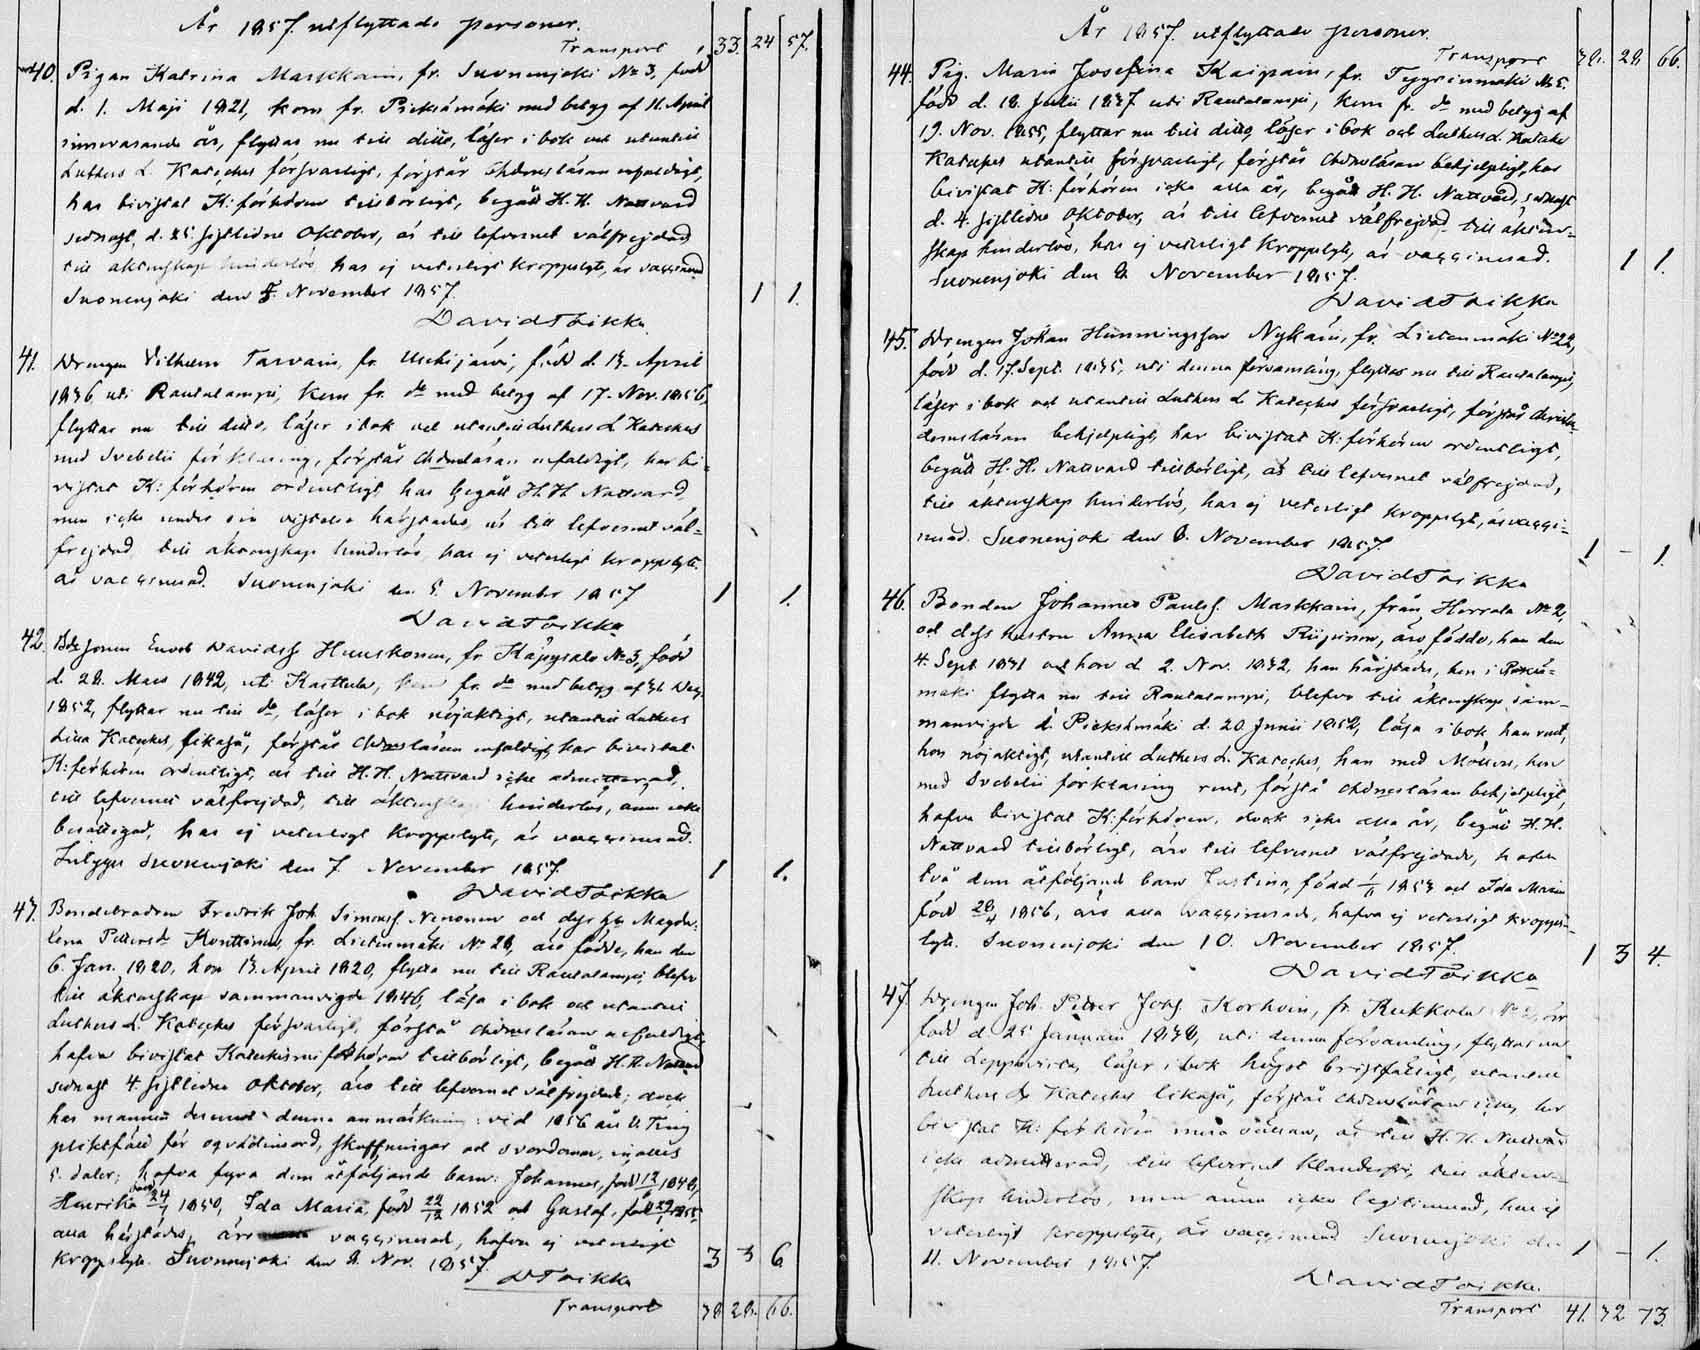 År 1857. utflyttade personer.
Transport 33 24 57.
40. Pigan Katrina Markkain, fr. Suonenjoki No 3, född
d. 1. Maji 1821, kom fr. Pieksämäki med betyg af 11. April
innevarande år, flyttar nu till ditto, läser i bok och utantill
Luthers L. Kateches försvarligt, förstår Chdomsläran enfaldigt,
har bivistat K: förhören tillbörligt, begått H. H. Nattvard
sednast d. 25 sistlidne Oktober, är till lefvernet välfrejdad
till äktenskap hinderlös, har ej veterligt kroppslyte, är vaccinerad
Suonenjoki den 5. November 1857. 1 1.
David Toikka.
41. Drengen Vilhelm Tarvain, fr. född d. 13. April
1836 uti Rautalampi, kom fr. do med betyg af 17. Nov. 1856,
flyttar nu till ditto, läser i bok och utantill Luthers L Kateches
med Svebelii förklaring, förstår Chdomsläran enfaldigt, har bi-
vistat K: förhören ordentligt, har begått H. H. Nattvard,
men icke under sin vistelse härstädes, är till lefvernet väl-
frejdad, till äktenskap hinderlös, har ej veterligt kroppslyte.
är vaccinerad. Suonenjoki den 5. November 1857 1 1.
David Toikka
42. Enoch Davids Huuskonen, fr Käpysalo No 3, född
d. 28. Mars 1842, uti Karttula, kom fr. do med betyg af
1852, flyttar nu till do, läser i bok nöjaktigt, utantill Luthers
Lilla Kateches likaså, förstår Chdomsläran enfaldigt, har bivistat
K: förhören ordentligt, är till H. H. Nattvard icke admitterad,
till lefvernet välfrejdad, till äktenskap hinderlös, ännu icke
berättigad, har ej veterligt kroppslyte, är vaccinerad.
Intygar Suonenjoki den 7 November 1857. 1 1.
David Toikka
43. Bondebrodren Fredrik Joh. Simons Nenonen och dess hu Magda-
lena Petters dr Konttinen, fr. Lietenmäki No 28, äro födde, han den
6. Jan. 1820, hon 13. April 1820, flytta nu till Rautalampi, blefvo
till äktenskap sammanvigde 1846, läsa i bok och utantill
Luthers L. Kateches försvarligt, förstå Chdomsläran enfaldigt,
hafva bivistat Katekismi förhören tillbörligt, begått H. H. Nattvard
sednast 4. sistlidne Oktober, äro till lefvernet välfrejdade; dock
har mannen denna anmärkning: vid 1856 års V. Ting
pliktfäld för oqvädinsord, skuffningar och svordomar,
5. daler; hafva fyra dem åtföljande barn: Johannes, född 12/ 1848,
Henrika född 24/1 1850, Ida Maria, född 22/12 1852 och Gustaf, född 1855
alla härstädes, äro vaccinerad, hafva ej veterligt
kroppslyte. Suonenjoki den 8. Nov. 1857. 3 3 6
D Toikka
Transport 38 28. 66.
År 1857. utflyttade personer.
Transport 38. 28 66.
44. Pig. Maria Josefina Kaipain, fr. Tyyrinmäki No 5.
född d. 18. Julii 1837 uti Rautalampi, kom fr. do med betyg af
19. Nov. 1855, flyttar nu till ditto, läser i bok och Luthers L.
Kateches utantill försvarligt, förstår Chdomsläran behjelpligt, har
bivistat K: förhören icke alla år, begått H. H. Nattvard, sednast
d. 4. sistlidne Oktober, är till lefvernet välfrejdad till äkten-
skap hinderlös, har ej veterligt kroppslyte, är vaccinerad.
Suonenjoki den 8 November 1857. 1 1.
David Toikka
45. Drengen Johan Hinningsson Nykäin, fr. Lietenmäki No 22,
född d. 17. Sept. 1835, uti denna församling, flyttar nu till Rautalampi,
läser i bok och utantill Luthers L Kateches försvarligt, förstår Christen-
domsläran behjelpligt, har bivistat K: förhören ordentligt,
begått H. H. Nattvard tillbörligt, är till lefvernet välfrejdad,
till äktenskap hinderlös, har ej veterligt kroppslyte, är vacci-
nerad. Suonenjoki den 8. November 1857 1 – 1.
David Toikka
46. Bonden Johannes Pauls. Markkain, från Herrala No 2,
och dess hustru Anna Elisabeth Riipinen, äro födde, han den
4. Sept. 1831 och hon d 2. Nov. 1832, han härstädes, hon i Pieksä-
mäki flytta nu till Rautalampi, blefvo till äktenskap sam-
manvigde i Pieksämäki d. 20 Junii 1852, läsa i bok, han rent,
hon nöjaktigt, utantill Luthers L. Kateches, han med Möllers, hon
med Svebelii förklaring rent, förstå chdomsläran behjelpligt,
hafva bivistat K: förhören, dock icke alla år, begått H. H.
Nattvard tillbörligt, äro till lefvernet välfrejdade, hafva
två dem åtföljande barn Justina, född 1/11 1853 och Ida Maria
född 28/4 1856, äro alla vaccinerade, hafva ej veterligt kropps-
lyte. Suonenjoki den 10. November 1857. 1 3 4.
David Toikka
47. Drengen Joh. Petter Johs. Korhoin, fr. Kukkola
född d. 25 Januari 1838, uti denna församling, flyttar nu
till Leppävirta, läser i bok högst bristfälligt, utantill
Luthers L Kateches likaså, förstår chdomsläran icke, har
bivistat K: förhören är till H. H. Nattvard
icke admitterad, till lefvernet klanderfri, till äkten-
skap hinderlös, men ännu icke legitimerad, har ej
veterligt kroppslyte, är vaccinerad Suonenjoki den 1 – 1.
11. November 1857.
David Toikka.
Transport 41. 32 73.